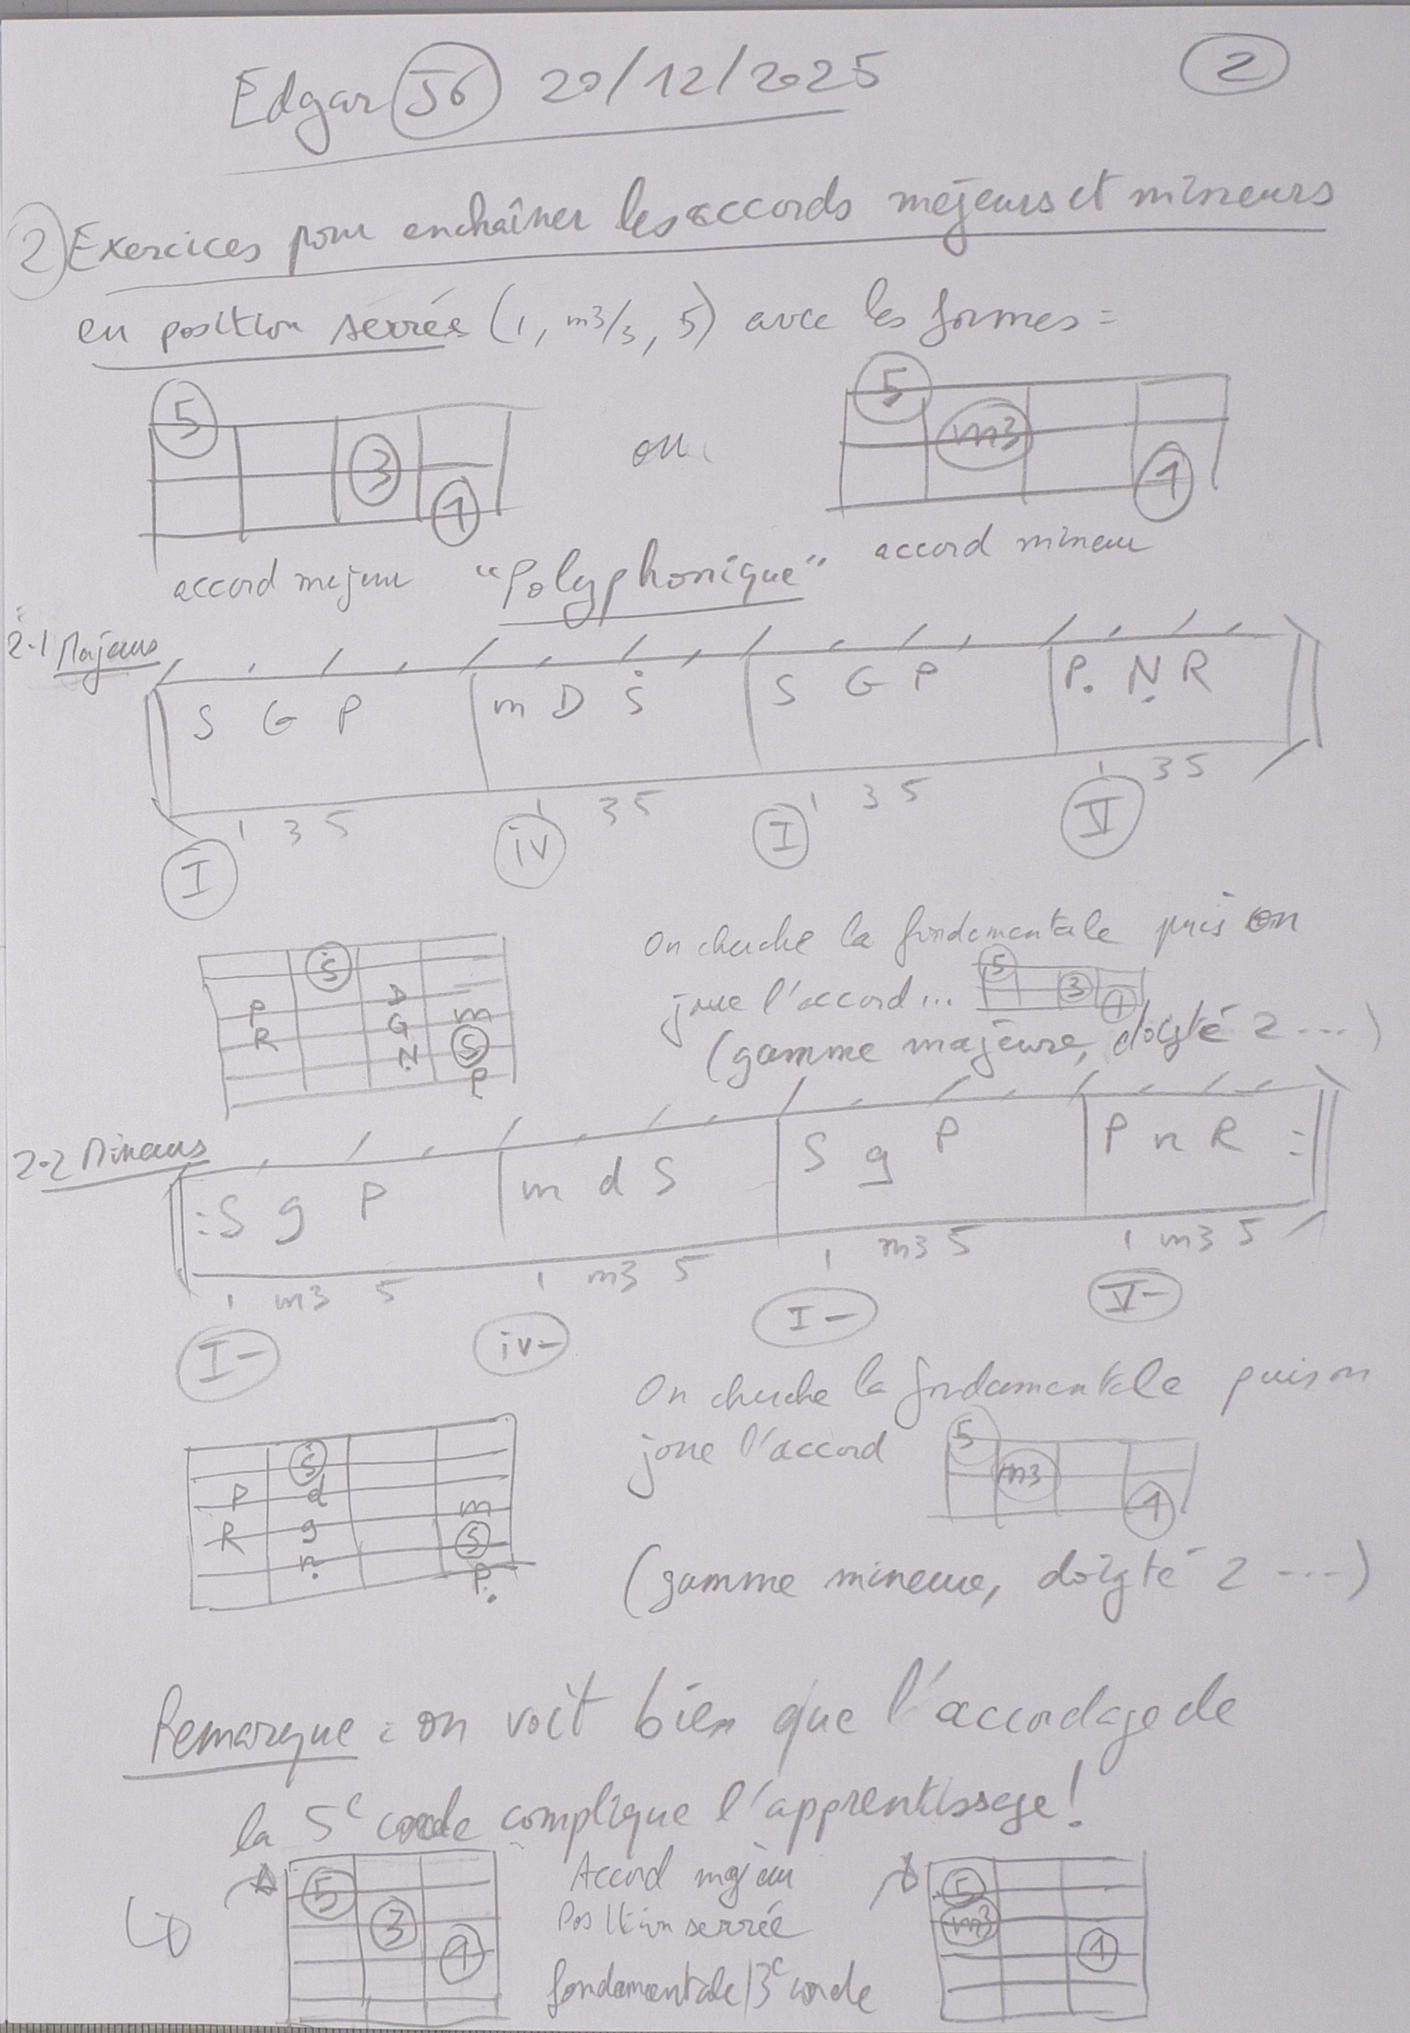 Edgar J6 20/12/2025
2
2) Exercices pour enchaîner les accords majeurs et mineurs
en position serrée (1, m3/3, 5) avec les formes =
5 3 1
ou
5 m3 1
accord majeur "Polyphonique" accord mineur
2-1 Majeurs
S G P m D Ṡ S G P P. N. R
1 3 5 1 3 5 1 3 5 1 3 5
I iv I V
Ṡ
P D
R G m
N. S
P.
On cherche la fondamentale puis on
joue l'accord... 5 3 1
(gamme majeure, doigté 2 ...)
2-2 Mineurs
: S g P m d S S g P P n R :
1 m3 5 1 m3 5 1 m3 5 1 m3 5
I- iv- I- V-
Ṡ
P d
R g m
n. S
P.
On cherche la fondamentale puis on
joue l'accord 5 m3 1
(gamme mineure, doigté 2 ...)
Remarque : on voit bien que l'accordage de
la 5e corde complique l'apprentissage !
5 3 1
Accord majeur
Position serrée
fondamentale/3e corde
5 m3 1